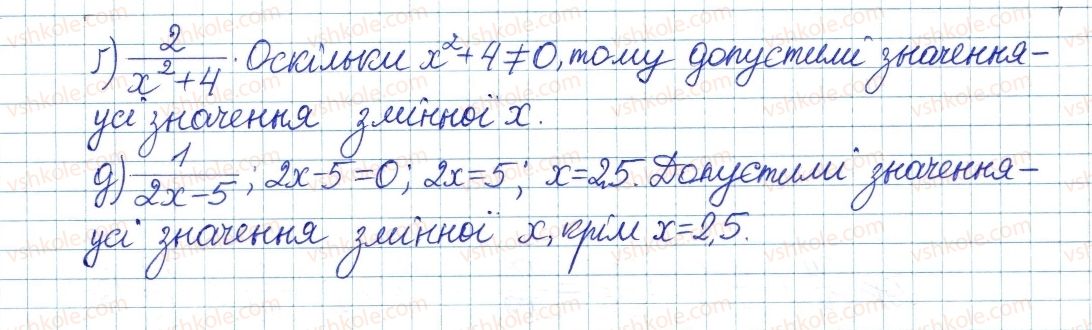 г) 2/(x²+4). Оскільки x²+4≠0, тому допустимі значення –
усі значення змінної x.
д) 1/(2x-5); 2x-5=0; 2x=5; x=2,5. Допустимі значення –
усі значення змінної x, крім x=2,5.